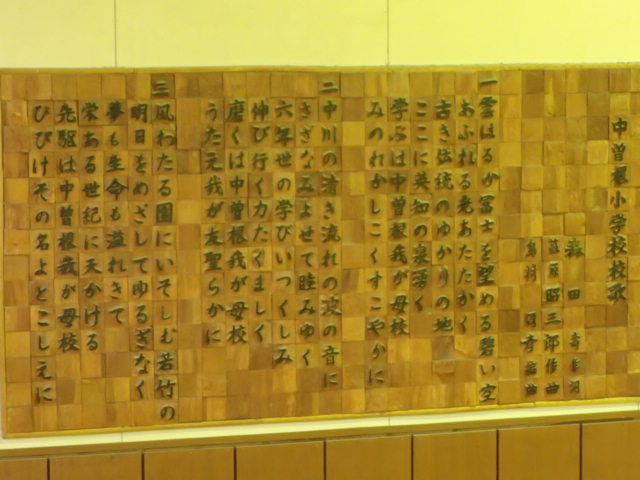 中曽根小学校校歌
森田 作詞
昭三郎作曲
島村 編曲
一 雲はるか冨士を望める碧い空
あふれる光あたたかく
古き伝統のゆかりの地
ここに英知の泉湧く
学ぶは中曽根我が母校
みのれかしこくすこやかに
二 中川の清き流れの波の音に
さざなみよせて睦みゆく
六年世の学びいつくしみ
伸び行く力たくましく
磨くは中曽根我が母校
うたえ我が友聖らかに
三 風わたる園にいそしむ若竹の
明日をめざしてゆるぎなく
夢も生命も溢れきて
栄ある世紀に天かける
先駆は中曽根我が母校
ひびけその名よとこしえに